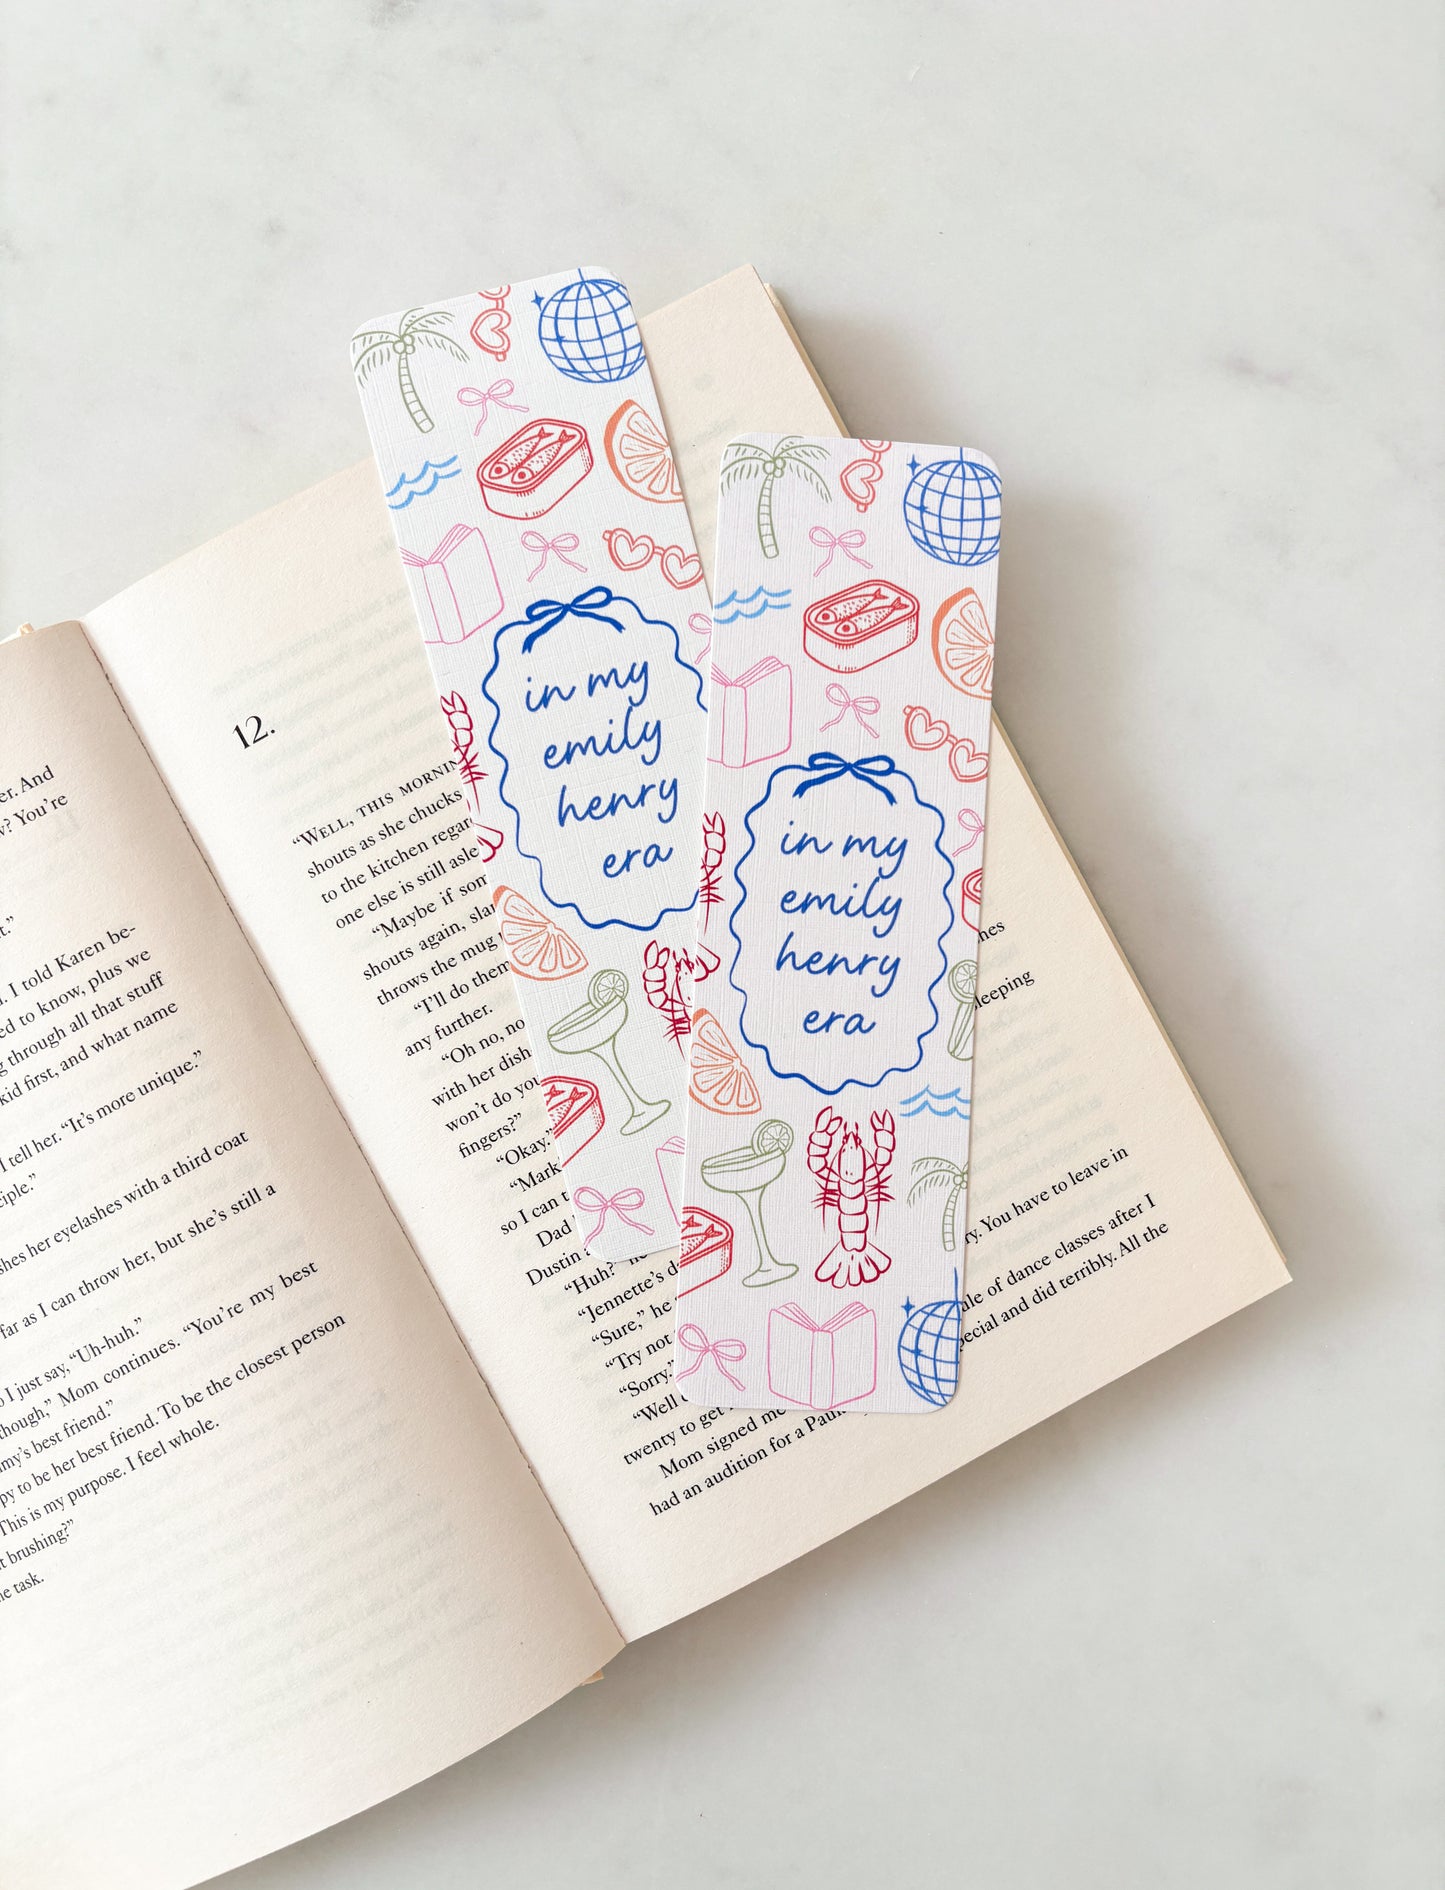 er. And
w? You're
t."
. I told Karen be-
ed to know, plus we
g through all that stuff
kid first, and what name
I tell her. "It's more unique."
ciple."
shes her eyelashes with a third coat
far as I can throw her, but she's still a
o I just say, "Uh-huh."
though," Mom continues. "You're my best
my's best friend."
py to be her best friend. To be the closest person
This is my purpose. I feel whole.
t brushing?"
he task.
12.
"WELL, THIS MORNIN
shouts as she chucks
to the kitchen regar
one else is still asle
"Maybe if som
shouts again, slar
throws the mug
"I'll do them
any further.
"Oh no, no
with her dish
won't do you
fingers?"
"Okay."
"Mark
so I can t
Dad
Dustin
"Huh?" he
"Jennette's d
"Sure," he
"Try not
"Sorry."
"Well
twenty to get
Mom signed me
had an audition for a Paul
hes
leeping
ry. You have to leave in
ule of dance classes after I
pecial and did terribly. All the
in my
emily
henry
era
in my
emily
henry
era